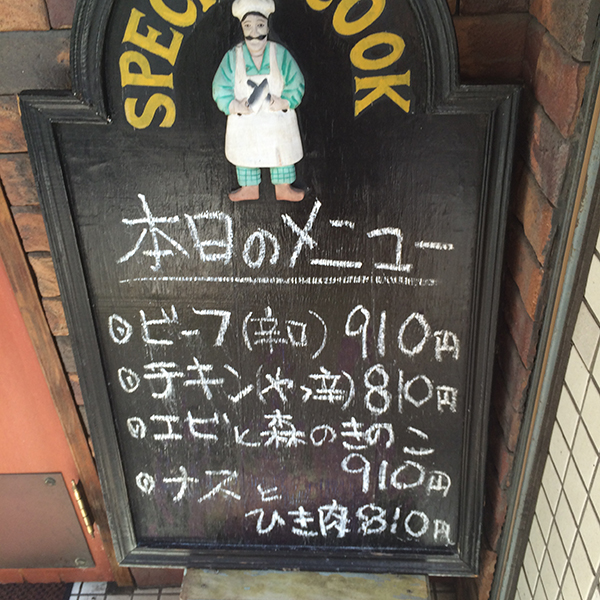 SPECIAL COOK
本日のメニュー
②ビーフ(辛口) 910円
①チキン(やゝ辛) 810円
⓪エビと森のきのこ
910円
⓪ナスと
ひき肉 810円